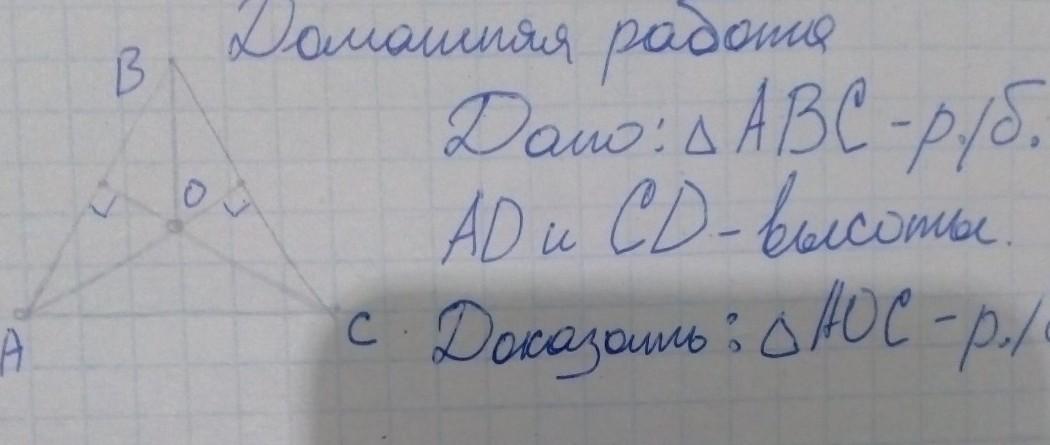 Домашняя работа
B
Дано: △ABC - р./б.
O
AD и CD - высоты.
A
C
Доказать: △AOC - р./